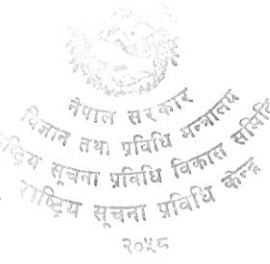 नेपाल सरकार
विज्ञान तथा प्रविधि मन्त्रालय
सूचना प्रविधि विकास समिति
राष्ट्रिय सूचना प्रविधि केन्द्र
२०५८